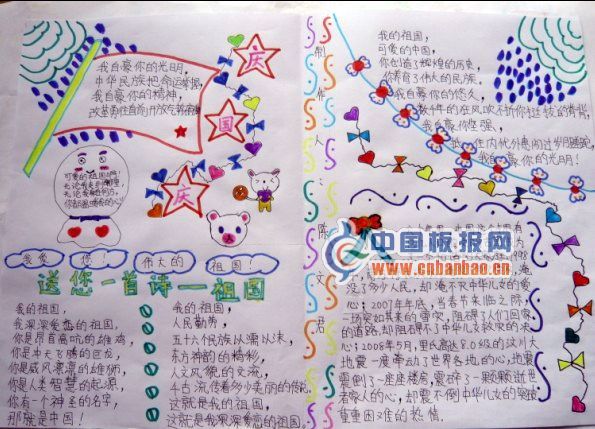 我自豪你的光明,
中华民族把命运掌握,
我自豪你的精神,
改革勇往直前开放
庆
国
庆
可爱的祖国啊!
我爱
您!
伟大的
祖国!
送您一首诗—祖国
我的祖国,
我深深爱恋的祖国,
你是昂首高吭的雄鸡,
你是冲天飞腾的巨龙,
你是威风凛凛的雄狮,
你是人类智慧的起源,
你有一个神圣的名字,
那就是中国!
我的祖国,
人民勤劳,
五十六个民族从
东方神韵的精彩,
人文风貌的交流,
古流传着多少美丽的传说,
这就是我的祖国,
这就是我深深爱恋的祖国
制作人:陈文君
我的祖国,
可爱的中国,
你创造了辉煌的历史,
你养育了伟大的民族,
我自豪你的悠久,
数千年的狂风吹不折你挺拔的脊背,
我自豪你坚强,
我自豪你的光明!
中国板报网
www.cnbanbao.cn
没了多少人民,却淹不灭中华儿女的爱
心;2007年年底,当春节来临之际,
三场突如其来的雪灾,阻碍了人们回家
的道路,却阻碍不了中华儿女救灾的决
心;2008年5月,里氏高达8.0级的汶川大
地震一度牵动了世界各地的心,地震
震倒了一座座楼房,震碎了一颗颗逝世
者家人的心,却震不倒中华儿女的
重重困难的热情.